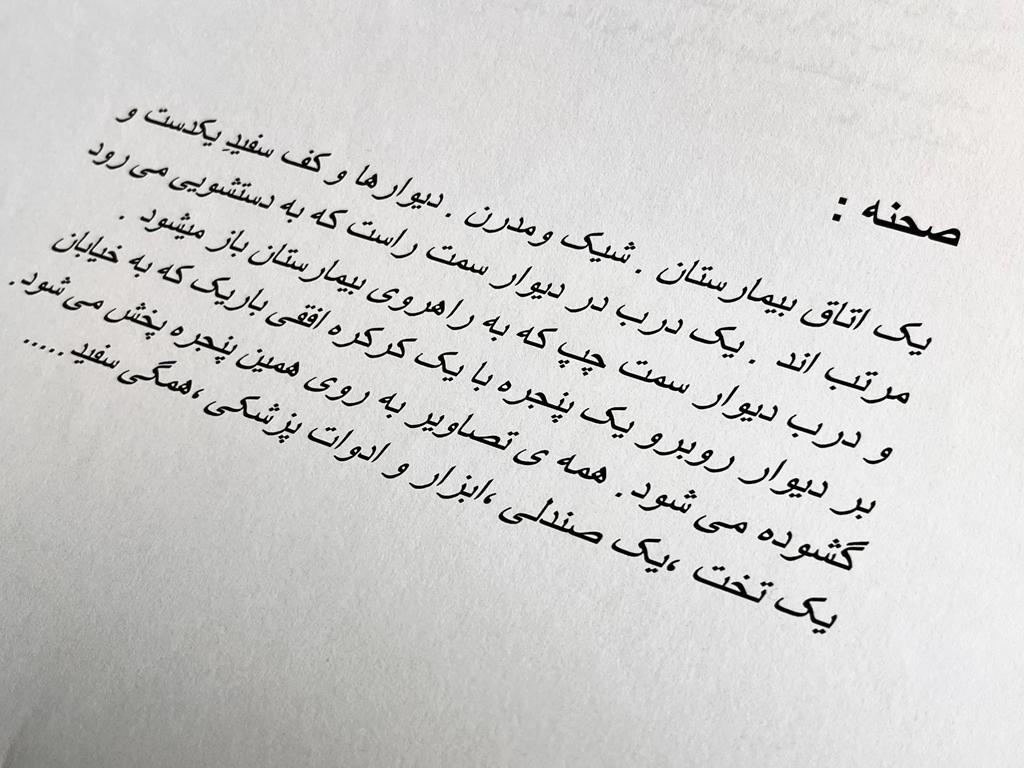 صحنه :
یک اتاق بیمارستان . شیک ومدرن . دیوارها و کف سفیدِ یکدست و
مرتب اند . یک درب در دیوار سمت راست که به دستشویی می رود
و درب دیوار سمت چپ که به راهروی بیمارستان باز میشود .
بر دیوار روبرو یک پنجره با یک کرکره افقی باریک که به خیابان
گشوده می شود. همه ی تصاویر به روی همین پنجره پخش می شود.
یک تخت ،یک صندلی ،ابزار و ادوات پزشکی ،همگی سفید .....